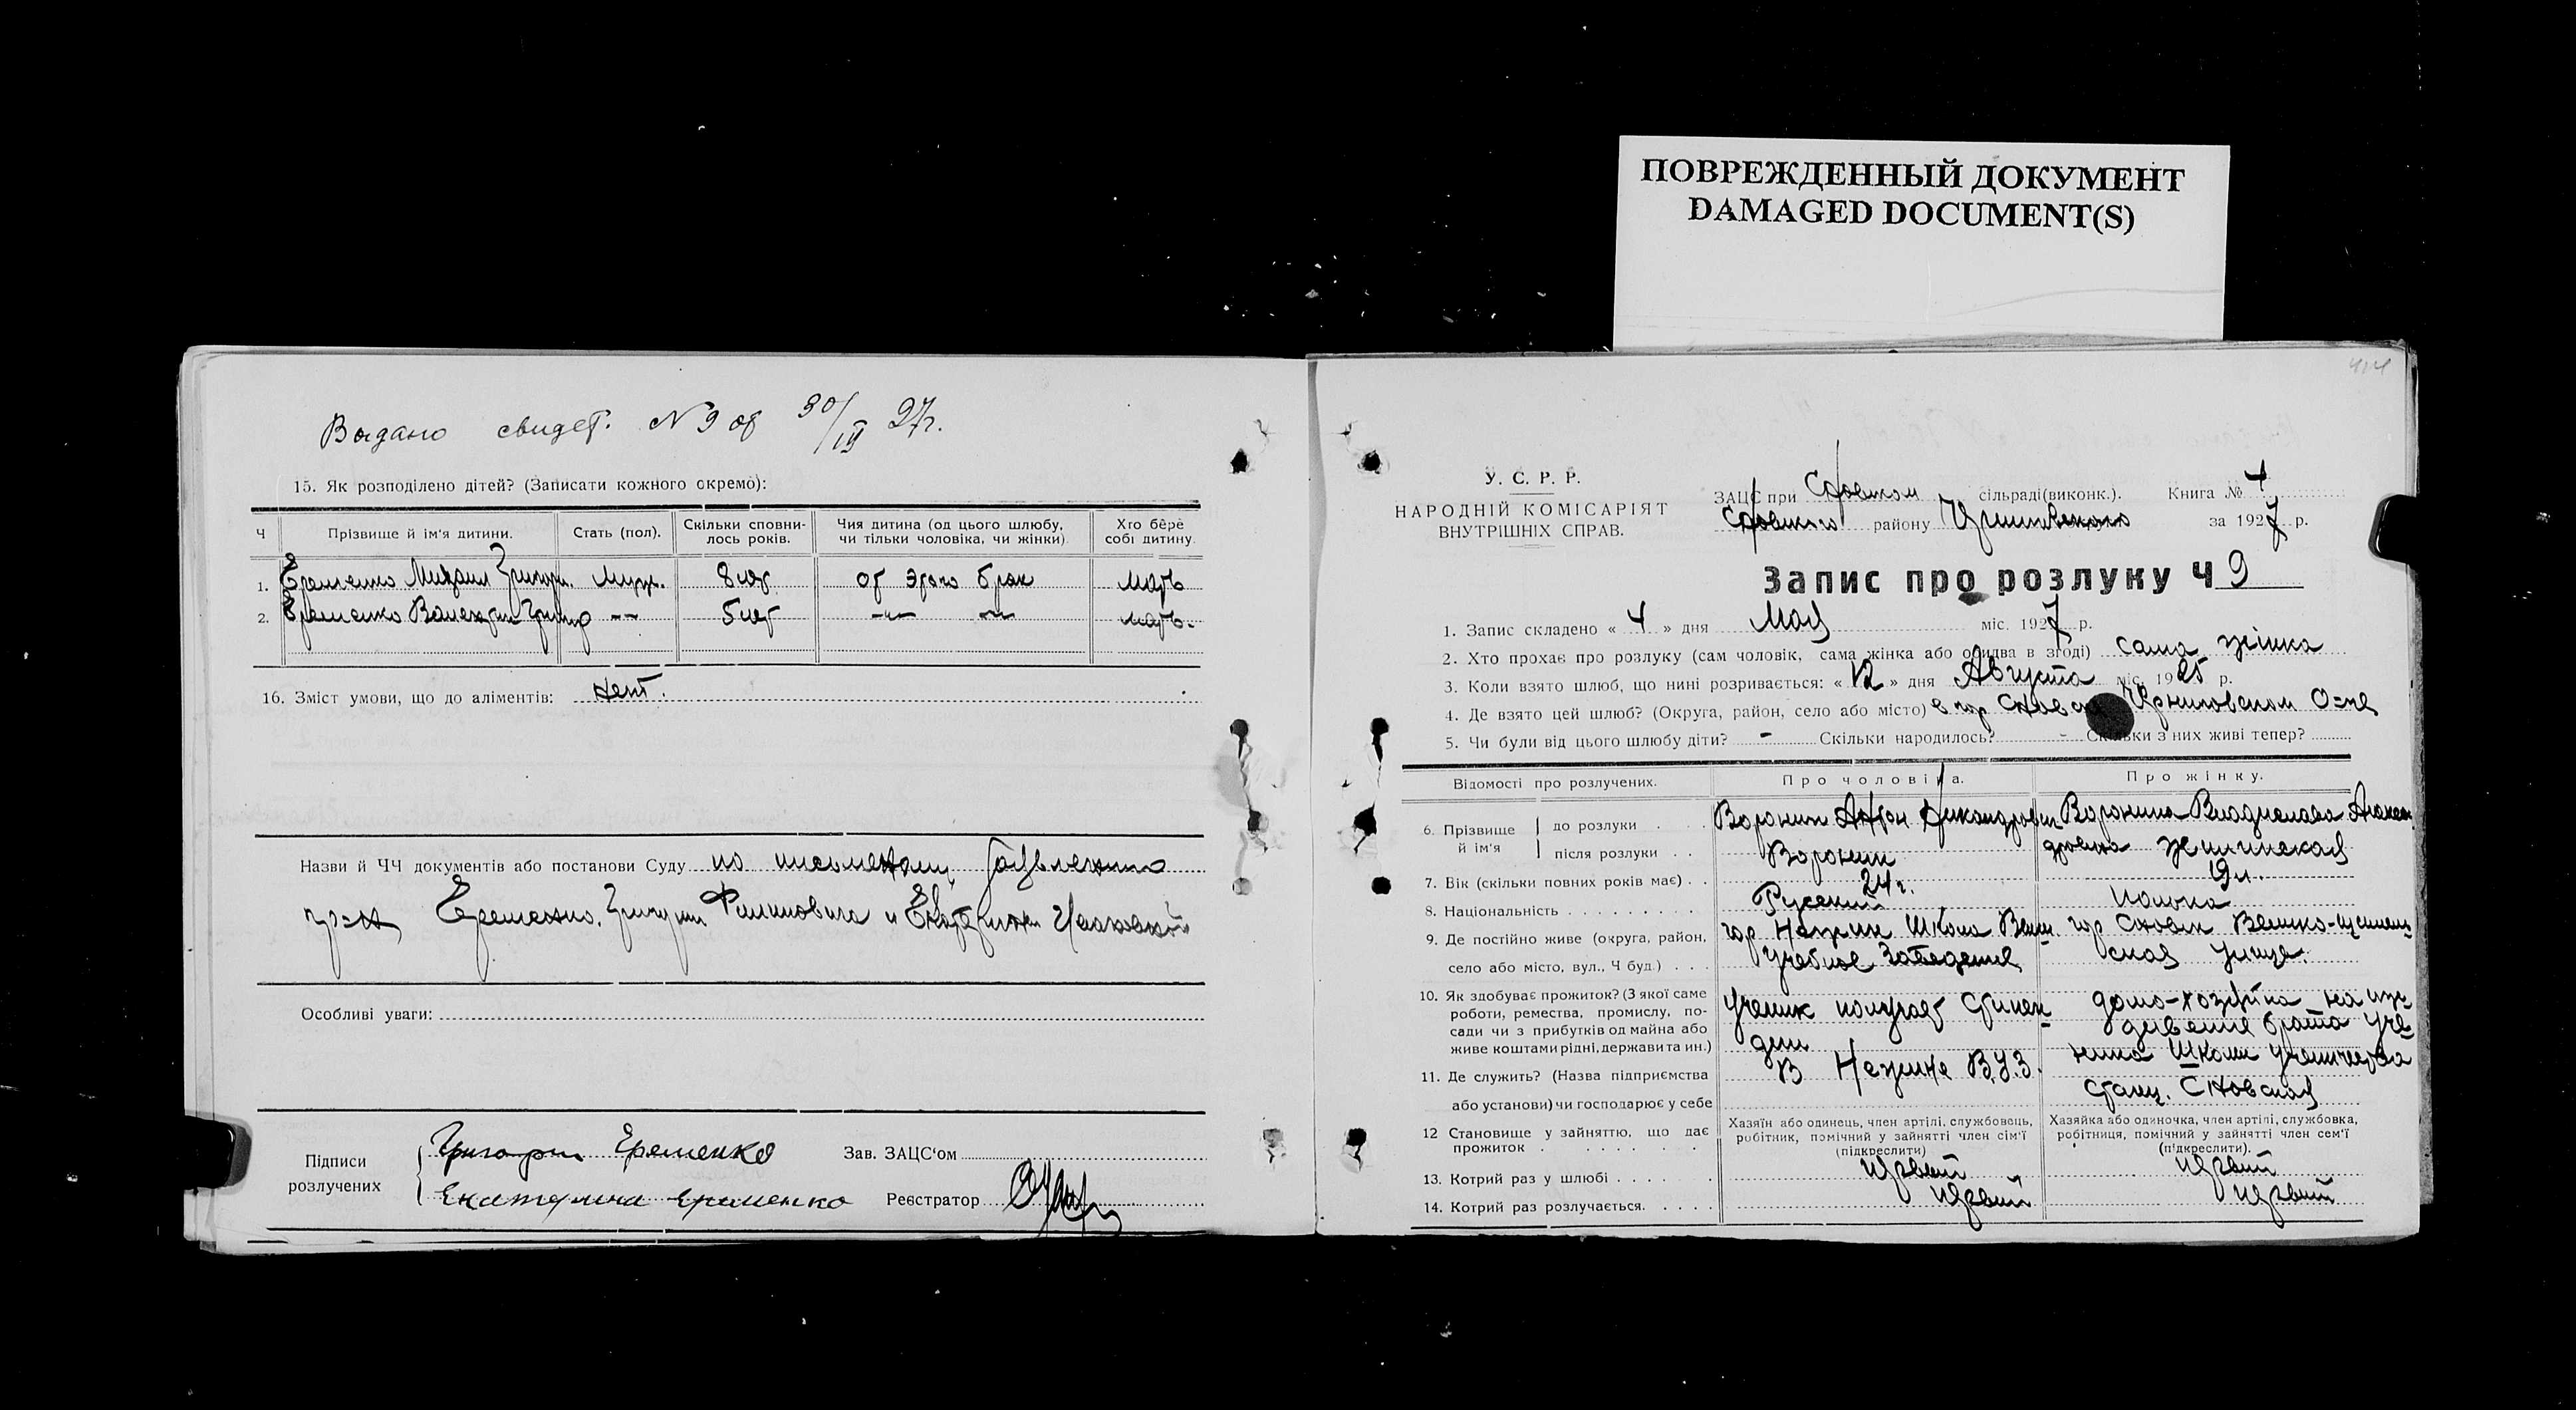 ПОВРЕЖДЕННЫЙ ДОКУМЕНТ
DAMAGED DOCUMENT(S)
Выдано свидет. N 9 от 30/IV 27г.
15. Як розподілено дітей? (Записати кожного окремо):
Ч Прізвище й ім'я дитини. Стать (пол). Скільки сповнилось років. Чия дитина (од цього шлюбу, чи тільки чоловіка, чи жінки) Хто бере собі дитину.
1. Еременко Михаил Григор. Муж. 8 лет от этого брак мать
2. Еременко Валентин Григор -"- 5 лет -"- -"- мать.
16. Зміст умови, що до аліментів: нет.
Назви й ЧЧ документів або постанови Суду по письменому заявлению
гр-н Еременко, Григрия Филиповича и Екатерины
Особливі уваги:
Підписи розлучених
Григорий Еременко Зав. ЗАЦС'ом
Екатерина Еременко Реєстратор
У. С. Р. Р.
НАРОДНІЙ КОМІСАРІЯТ
ВНУТРІШНІХ СПРАВ.
ЗАЦС при Сновском сільраді(виконк.). Книга № 4
Сновского району Черниговского за 1927 р.
Запис про розлуку Ч 9
1. Запис складено « 4 » дня Мая міс. 1927 р.
2. Хто прохає про розлуку (сам чоловік, сама жінка або обидва в згоді) сама жінка
3. Коли взято шлюб, що нині розривається: « 12 » дня Августа міс. 1925 р.
4. Де взято цей шлюб? (Округа, район, село або місто) в гор Сновск Черниговском О-ге
5. Чи були від цього шлюбу діти? - Скільки народилось? - Скільки з них живі тепер?
Відомості про розлучених. Про чоловіка. Про жінку.
6. Прізвище й ім'я
до розлуки Воронин Антон Никандрович Воронина Владислава Александровна
після розлуки Воронин Жилинская
7. Вік (скільки повних років має) 24 г. 19 л.
8. Національність Русский Полька
9. Де постійно живе (округа, район, село або місто, вул., Ч буд.) гор Нежин Школа Учебное Заведение гор Сновск улице.
10. Як здобуває прожиток? (З якої саме роботи, ремества, промислу, посади чи з прибутків од майна або живе коштами рідні, держави та ин.) Ученик получает стипендии домо-хозяйка на иждевение брата ученика Школи ученичества станц. Сновская
11. Де служить? (Назва підприємства або установи) чи господарює у себе В Нежине В.У.З.
12 Становище у зайняттю, що дає прожиток
Хазяїн або одинець, член артілі, службовець, робітник, помічний у зайнятті член сім'ї (підкреслити)
Хазяйка або одиночка, член артілі, службовка, робітниця, помічний у зайнятті член сем'ї (підкреслити).
13. Котрий раз у шлюбі первый первый
14. Котрий раз розлучається. первый первый